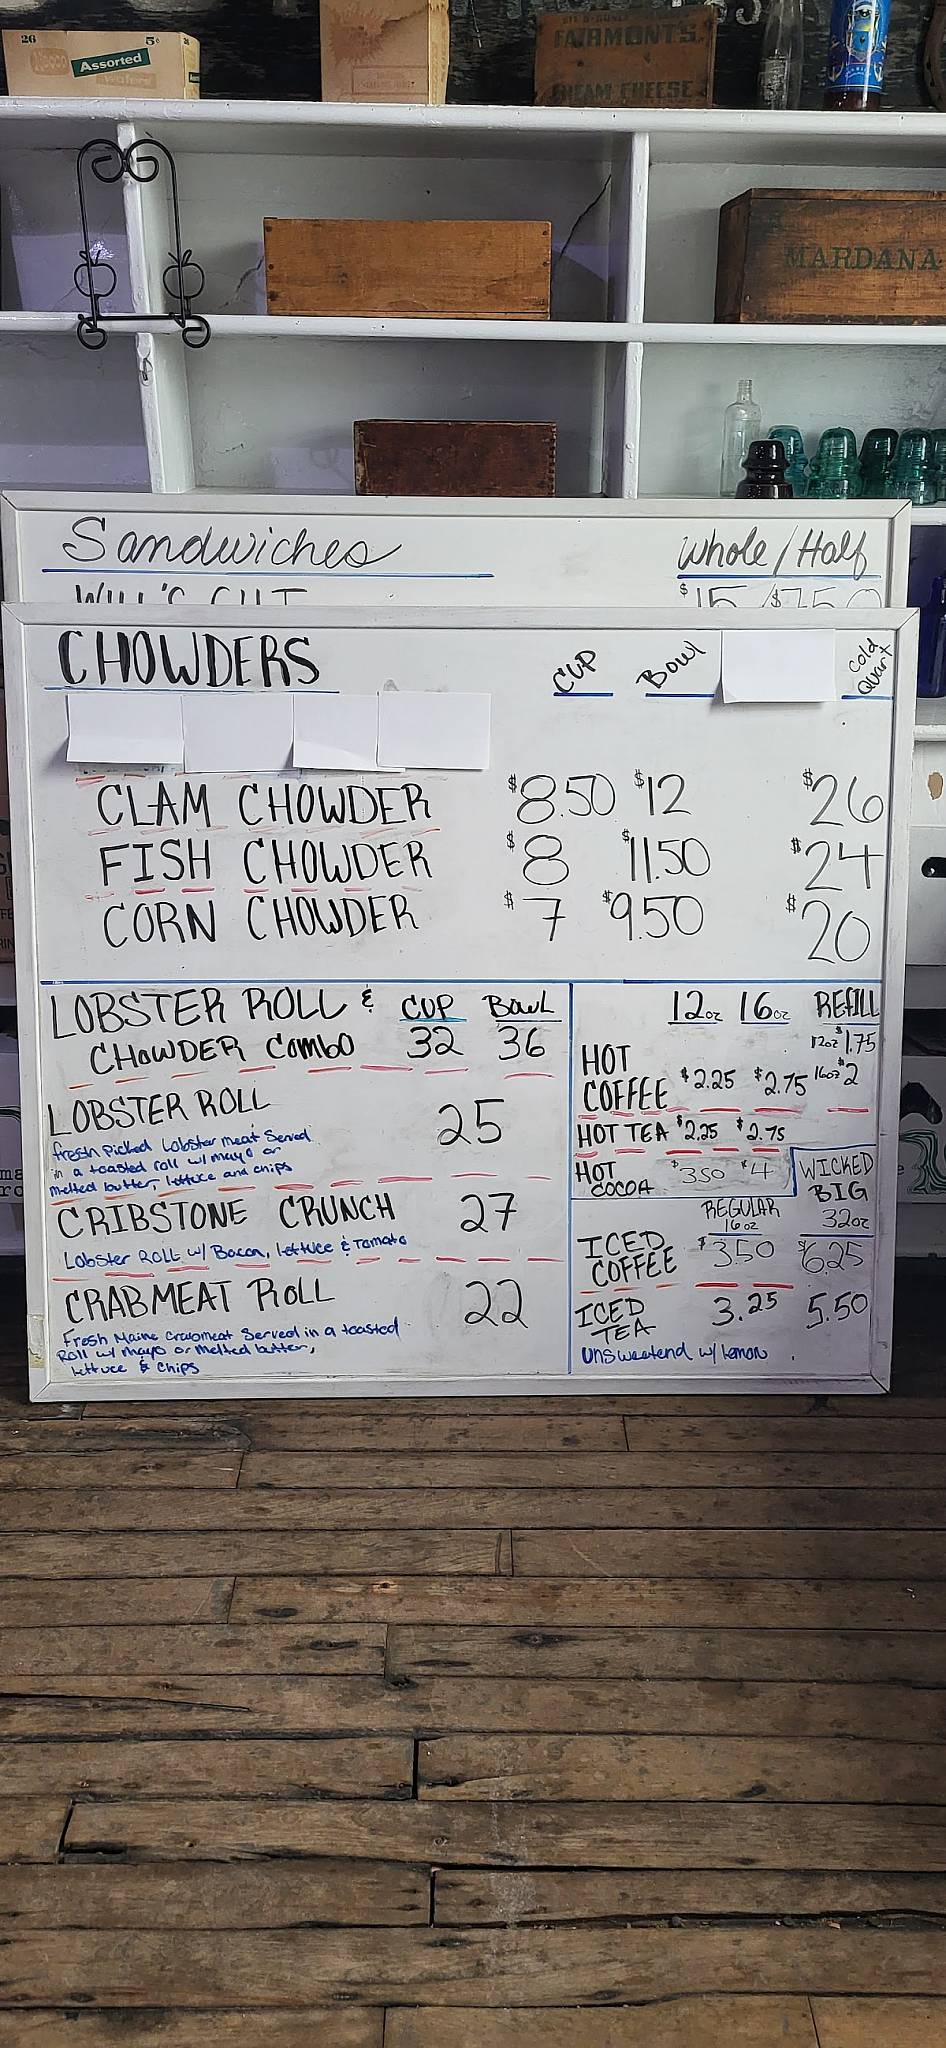 26 5¢
Necco Assorted
Wafers
FAIRMONT'S
CREAM CHEESE
MARDANA
Sandwiches Whole/Half
CHOWDERS CUP Bowl Cold Quart
CLAM CHOWDER $8.50 $12 $26
FISH CHOWDER $8 $11.50 $24
CORN CHOWDER $7 $9.50 $20
LOBSTER ROLL & CUP BOWL
CHOWDER COMBO 32 36
LOBSTER ROLL 25
fresh picked Lobster meat Served
in a toasted roll w/ mayo or
melted butter, lettuce and chips
CRIBSTONE CRUNCH 27
Lobster ROLL w/ Bacon, lettuce & Tomato
CRABMEAT ROLL 22
Fresh Maine Crabmeat Served in a toasted
Roll w/ mayo or melted butter,
lettuce & Chips
12oz 16oz REFILL
12oz $1.75
HOT
COFFEE $2.25 $2.75 16oz $2
HOT TEA $2.25 $2.75
HOT
COCOA $3.50 $4
WICKED
BIG
32oz
REGULAR
16oz
ICED
COFFEE $3.50 $6.25
ICED
TEA 3.25 5.50
Unsweetend w/ lemon